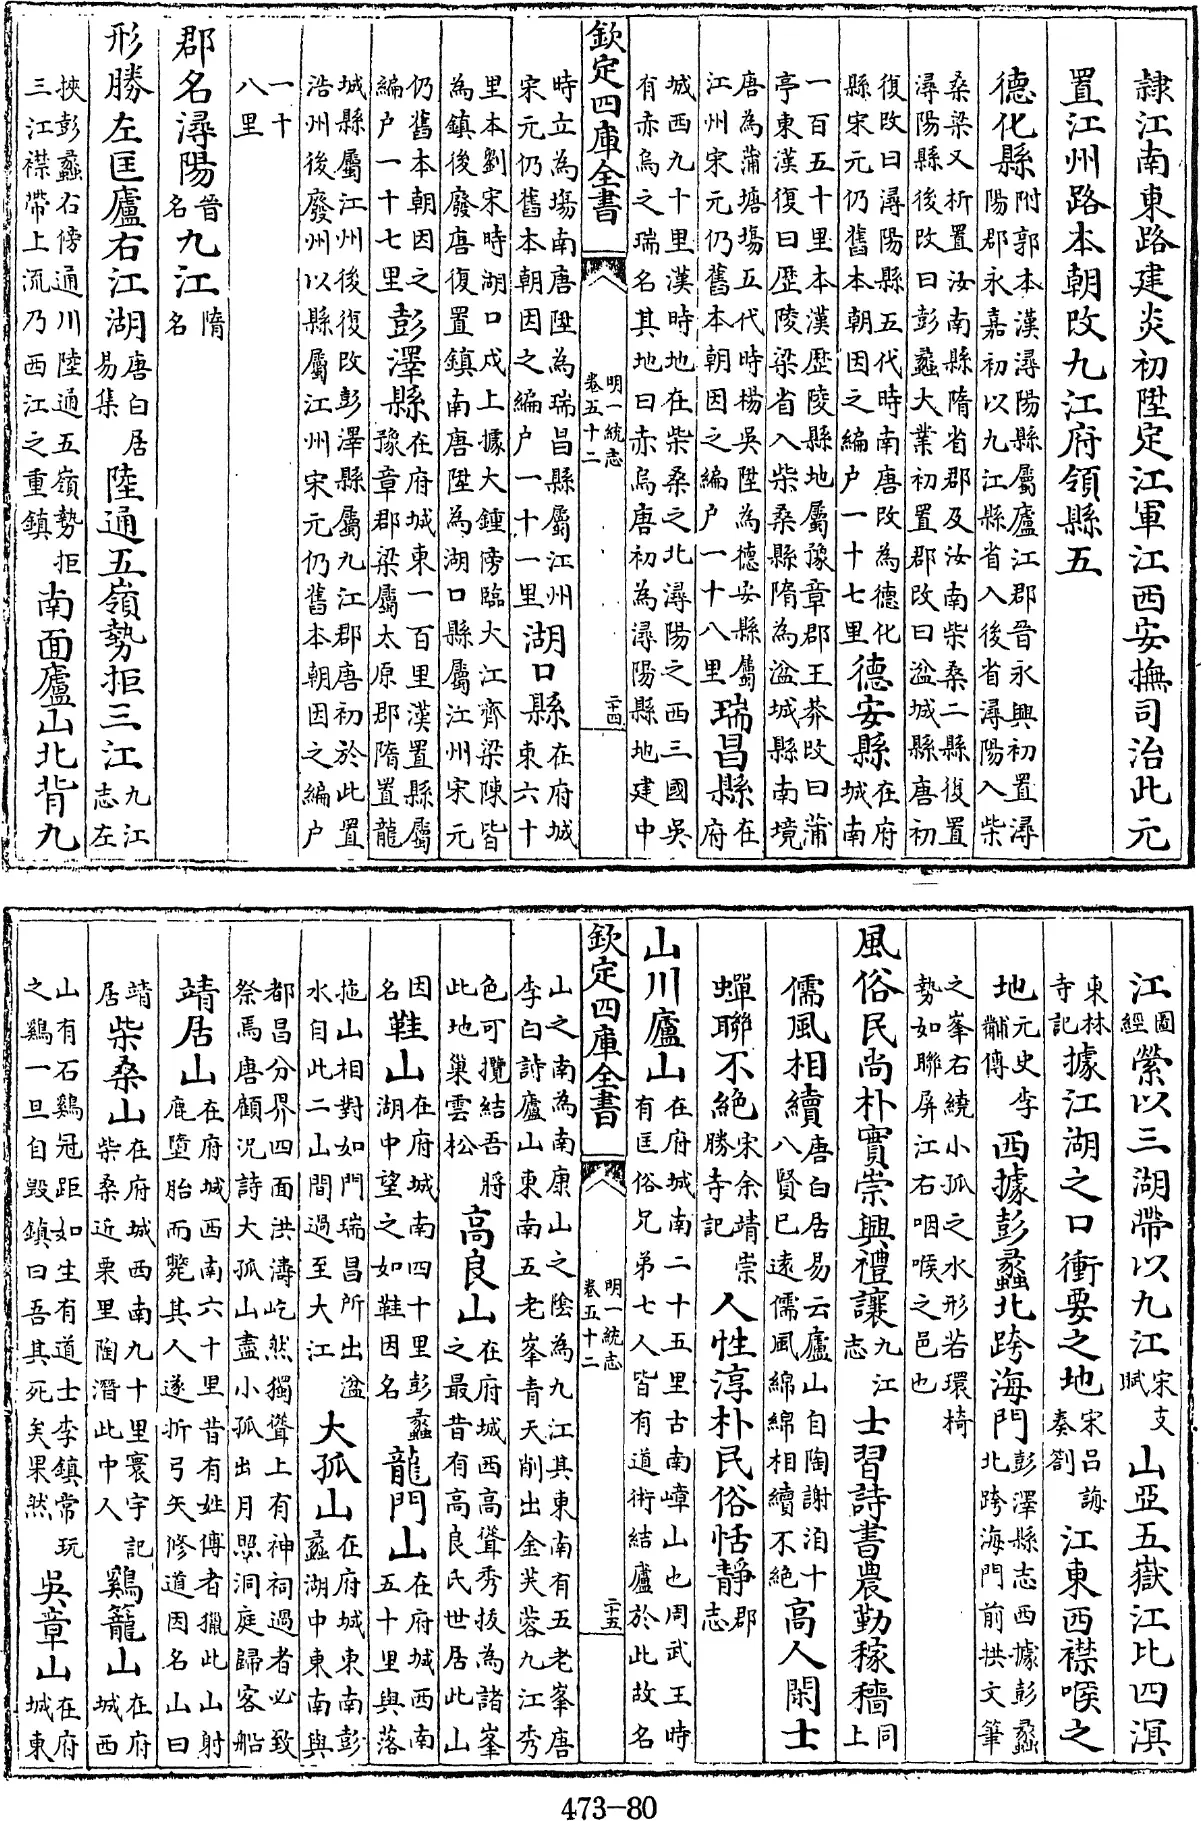 隷江南東路建炎初陞定江軍江西安撫司治此元
置江州路本朝改九江府領縣五
德化縣附郭本漢潯陽縣屬廬江郡晉永興初置潯陽郡永嘉初以九江縣省入後省潯陽入柴
桑梁又析置汝南縣隋省郡及汝南柴桑二縣復置潯陽縣後改曰彭蠡大業初置郡改曰湓城縣唐初
復改曰潯陽縣五代時南唐改為德化縣宋元仍舊本朝因之編户一十七里德安縣在府城南
一百五十里本漢歷陵縣地屬豫章郡王莽改曰蒲亭東漢復曰歷陵梁省入柴桑縣隋為湓城縣南境
唐為蒲塘場五代時楊吳陞為德安縣屬江州宋元仍舊本朝因之編户一十八里瑞昌縣在府
城西九十里漢時地在柴桑之北潯陽之西三國吳有赤烏之瑞名其地曰赤烏唐初為潯陽縣地建中
欽定四庫全書
明一統志
卷五十二
二十四
時立為場南唐陞為瑞昌縣屬江州宋元仍舊本朝因之編户一十一里湖口縣在府城東六十
里本劉宋時湖口戍上據大鍾傍臨大江齊梁陳皆為鎮後廢唐復置鎮南唐陞為湖口縣屬江州宋元
仍舊本朝因之編户一十七里彭澤縣在府城東一百里漢置縣屬豫章郡梁屬太原郡隋置龍
城縣屬江州後復改彭澤縣屬九江郡唐初於此置浩州後廢州以縣屬江州宋元仍舊本朝因之編户
一十八里
郡名潯陽晉名九江隋名
形勝左匡廬右江湖唐白居易集陸通五嶺勢拒三江九江志左
挾彭蠡右傍通川陸通五嶺勢拒三江襟帶上流乃西江之重鎮南面廬山北背九
江圖經縈以三湖帶以九江宋支賦山亞五嶽江比四溟
東林寺記據江湖之口衝要之地宋呂誨奏劄江東西襟喉之
地元史李黼傳西據彭蠡北跨海門彭澤縣志西據彭蠡北跨海門前拱文筆
之峯右繞小孤之水形若環椅勢如聯屏江右咽喉之邑也
風俗民尚朴實崇興禮讓九江志士習詩書農勤稼穡同上
儒風相續唐白居易云廬山自陶謝洎十八賢已遠儒風綿綿相續不絶高人閑士
蟬聯不絶宋余靖崇勝寺記人性淳朴民俗恬靜郡志
山川廬山在府城南二十五里古南嶂山也周武王時有匡俗兄弟七人皆有道術結廬於此故名
欽定四庫全書
明一統志
卷五十二
二十五
山之南為南康山之陰為九江其東南有五老峯唐李白詩廬山東南五老峯青天削出金芙蓉九江秀
色可攬結吾將此地巢雲松高良山在府城西高聳秀拔為諸峯之最昔有高良氏世居此山
因名鞋山在府城南四十里彭蠡湖中望之如鞋因名龍門山在府城西南五十里與落
拖山相對如門瑞昌所出湓水自此二山間過至大江大孤山在府城東南彭蠡湖中東南與
都昌分界四面洪濤屹然獨聳上有神祠過者必致祭焉唐顧况詩大孤山盡小孤出月照洞庭歸客船
靖居山在府城西南六十里昔有姓傅者獵此山射鹿墮胎而斃其人遂折弓矢修道因名山曰
靖居柴桑山在府城西南九十里寰宇記柴桑近栗里陶潛此中人鷄籠山在府城西
山有石鷄冠距如生有道士李鎮常玩之鷄一旦自毀鎮曰吾其死矣果然吳章山在府城東
473-80